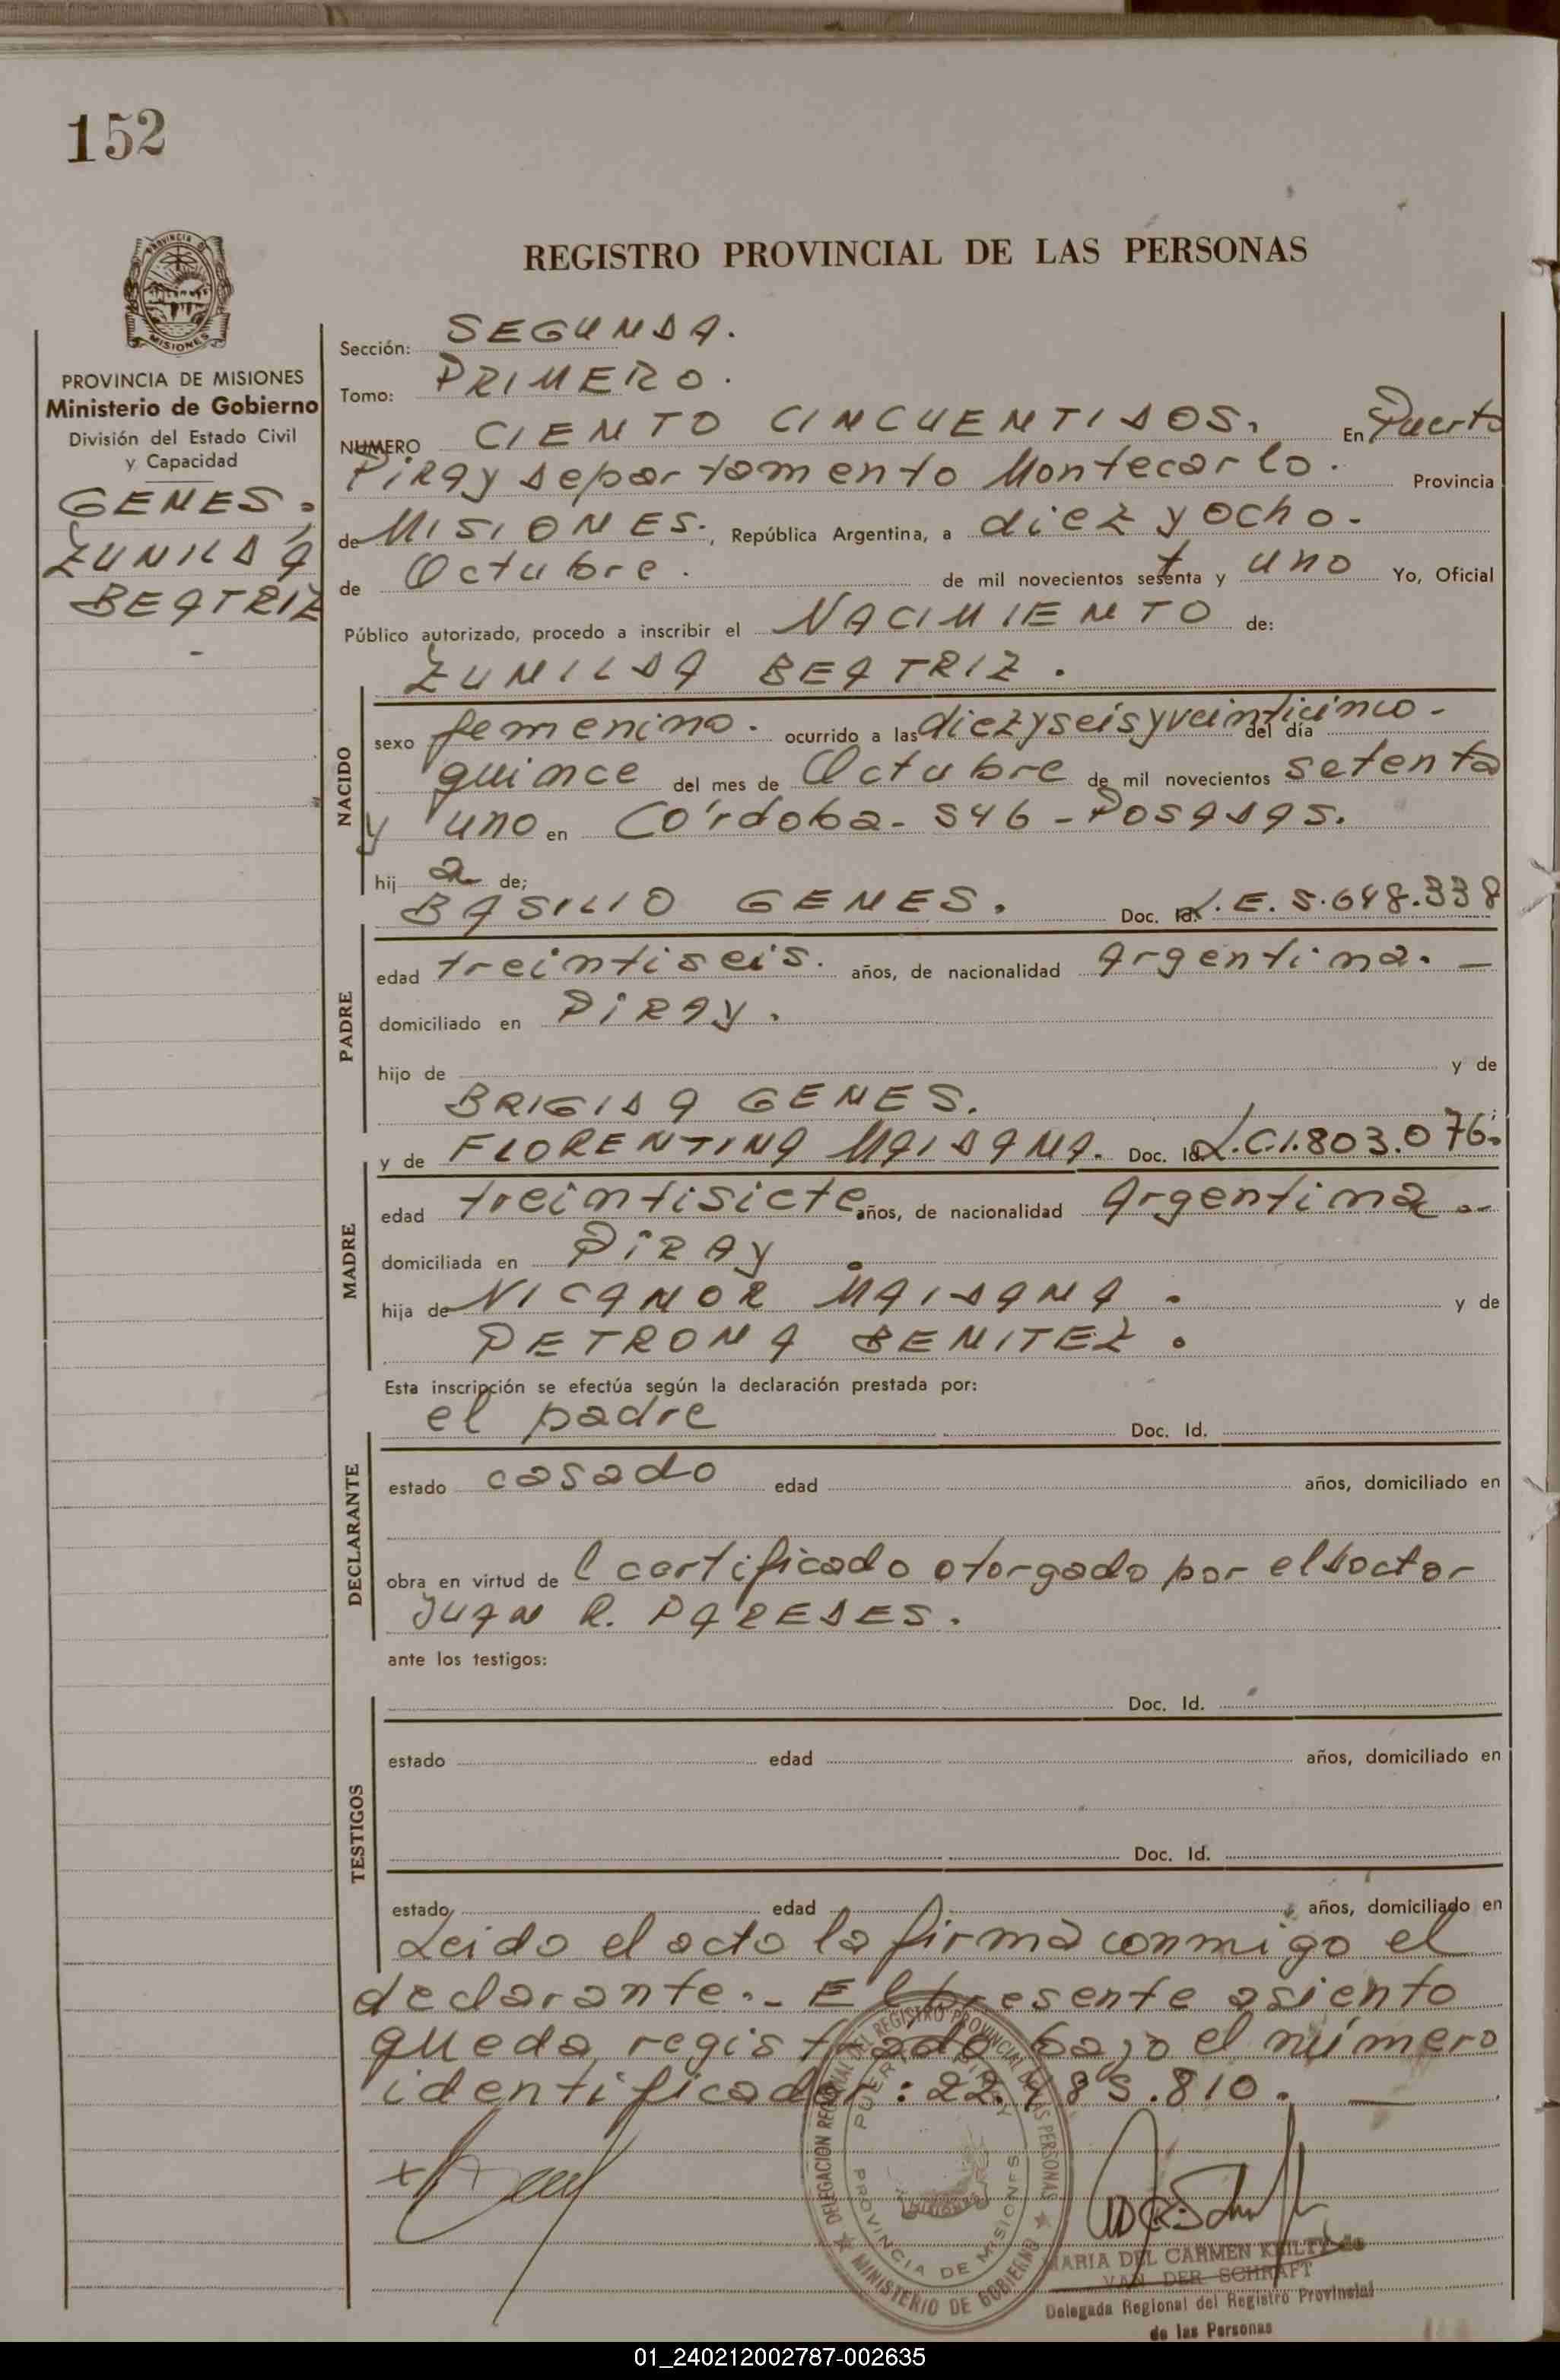 152
REGISTRO PROVINCIAL DE LAS PERSONAS
PROVINCIA DE MISIONES
Ministerio de Gobierno
División del Estado Civil
y Capacidad
GENES,
ZUNILDA
BEATRIZ
Sección: SEGUNDA.
Tomo: PRIMERO.
NUMERO CIENTO CINCUENTIDOS. En Puerto
PiRAy departamento Montecarlo. Provincia
de MISIONES., República Argentina, a diez y ocho.
de Octubre. de mil novecientos setenta y uno Yo, Oficial
Público autorizado, procedo a inscribir el NACIMIENTO de:
ZUNILDA BEATRIZ.
NACIDO
sexo femenino. ocurrido a las diezyseisyveinticinco- del día
quince del mes de Octubre de mil novecientos setenta
y uno en Córdoba- 546 - POSADAS.
hij a de;
BASILIO GENES. Doc. Id. L.E. 5.648.338
PADRE
edad treintiseis. años, de nacionalidad Argentina. -
domiciliado en PiRAy.
hijo de y de
BRIGIDA GENES.
y de FLORENTINA MAIDANA. Doc. Id. L.C.1.803.076.
MADRE
edad treintisiete años, de nacionalidad Argentina.-
domiciliada en PiRAy.
hija de NICANOR MAIDANA. y de
PETRONA BENITEZ.
Esta inscripción se efectúa según la declaración prestada por:
el padre Doc. Id.
DECLARANTE
estado casado edad años, domiciliado en
obra en virtud de l certificado otorgado por el doctor
JUAN R. PAREDES.
ante los testigos:
Doc. Id.
TESTIGOS
estado edad años, domiciliado en
Doc. Id.
estado edad años, domiciliado en
Leido el acto la firma conmigo el
declarante.- El presente asiento
queda registrado bajo el número
identificador: 22.485.810. —
DELEGACION REGIONAL DEL REGISTRO PROVINCIAL DE LAS PERSONAS
PUERTO PIRAY
PROVINCIA DE MISIONES
MINISTERIO DE GOBIERNO
MARIA DEL CARMEN de
VAN DER SCHRAFT
Delegada Regional del Registro Provincial
de las Personas
01_240212002787-002635